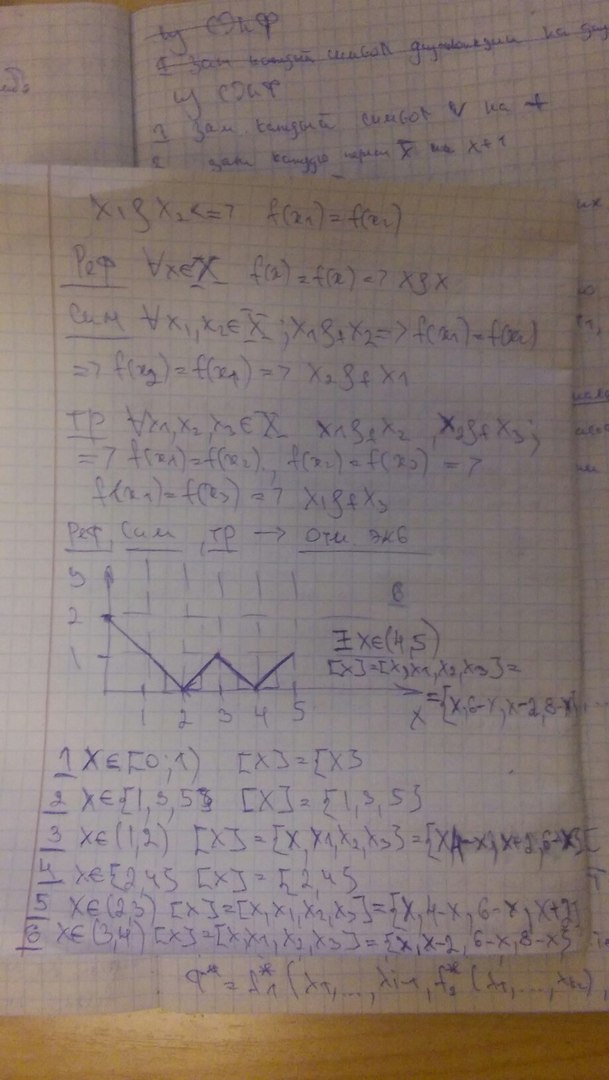 из СДНФ
1 Зам каждый символ дизъюнкции на
из СДНФ
1 Зам. каждый символ V на +
2 зам каждую x̄ на x+1
x₁ρx₂<=> f(x₁)=f(x₂)
Реф ∀x∈X f(x)=f(x)=> xρx
Сим ∀x₁,x₂∈X; x₁ρfx₂=>f(x₁)=f(x₂)
=> f(x₂)=f(x₁)=> x₂ρfx₁
Тр ∀x₁,x₂,x₃∈X x₁ρfx₂, x₂ρfx₃;
=> f(x₁)=f(x₂), f(x₂)=f(x₃) =>
f(x₁)=f(x₃)=> x₁ρfx₃
Реф, Сим, Тр → отн экв
y
2
1
1 2 3 4 5 x
∃ x∈(4,5)
[x]=[x,x₁,x₂,x₃}=
={x,6-x,x-2,8-x}
1 x∈[0;1) [x]={x}
2 x∈{1,3,5} [x]={1,3,5}
3 x∈(1,2) [x]={x,x₁,x₂,x₃}={x,4-x,x+2,6-x}
4 x∈{2,4} [x]={2,4}
5 x∈(2,3) [x]={x,x₁,x₂,x₃}={x,4-x,6-x,x+2}
6 x∈(3,4) [x]={x,x₁,x₂,x₃}={x,x-2,6-x,8-x}